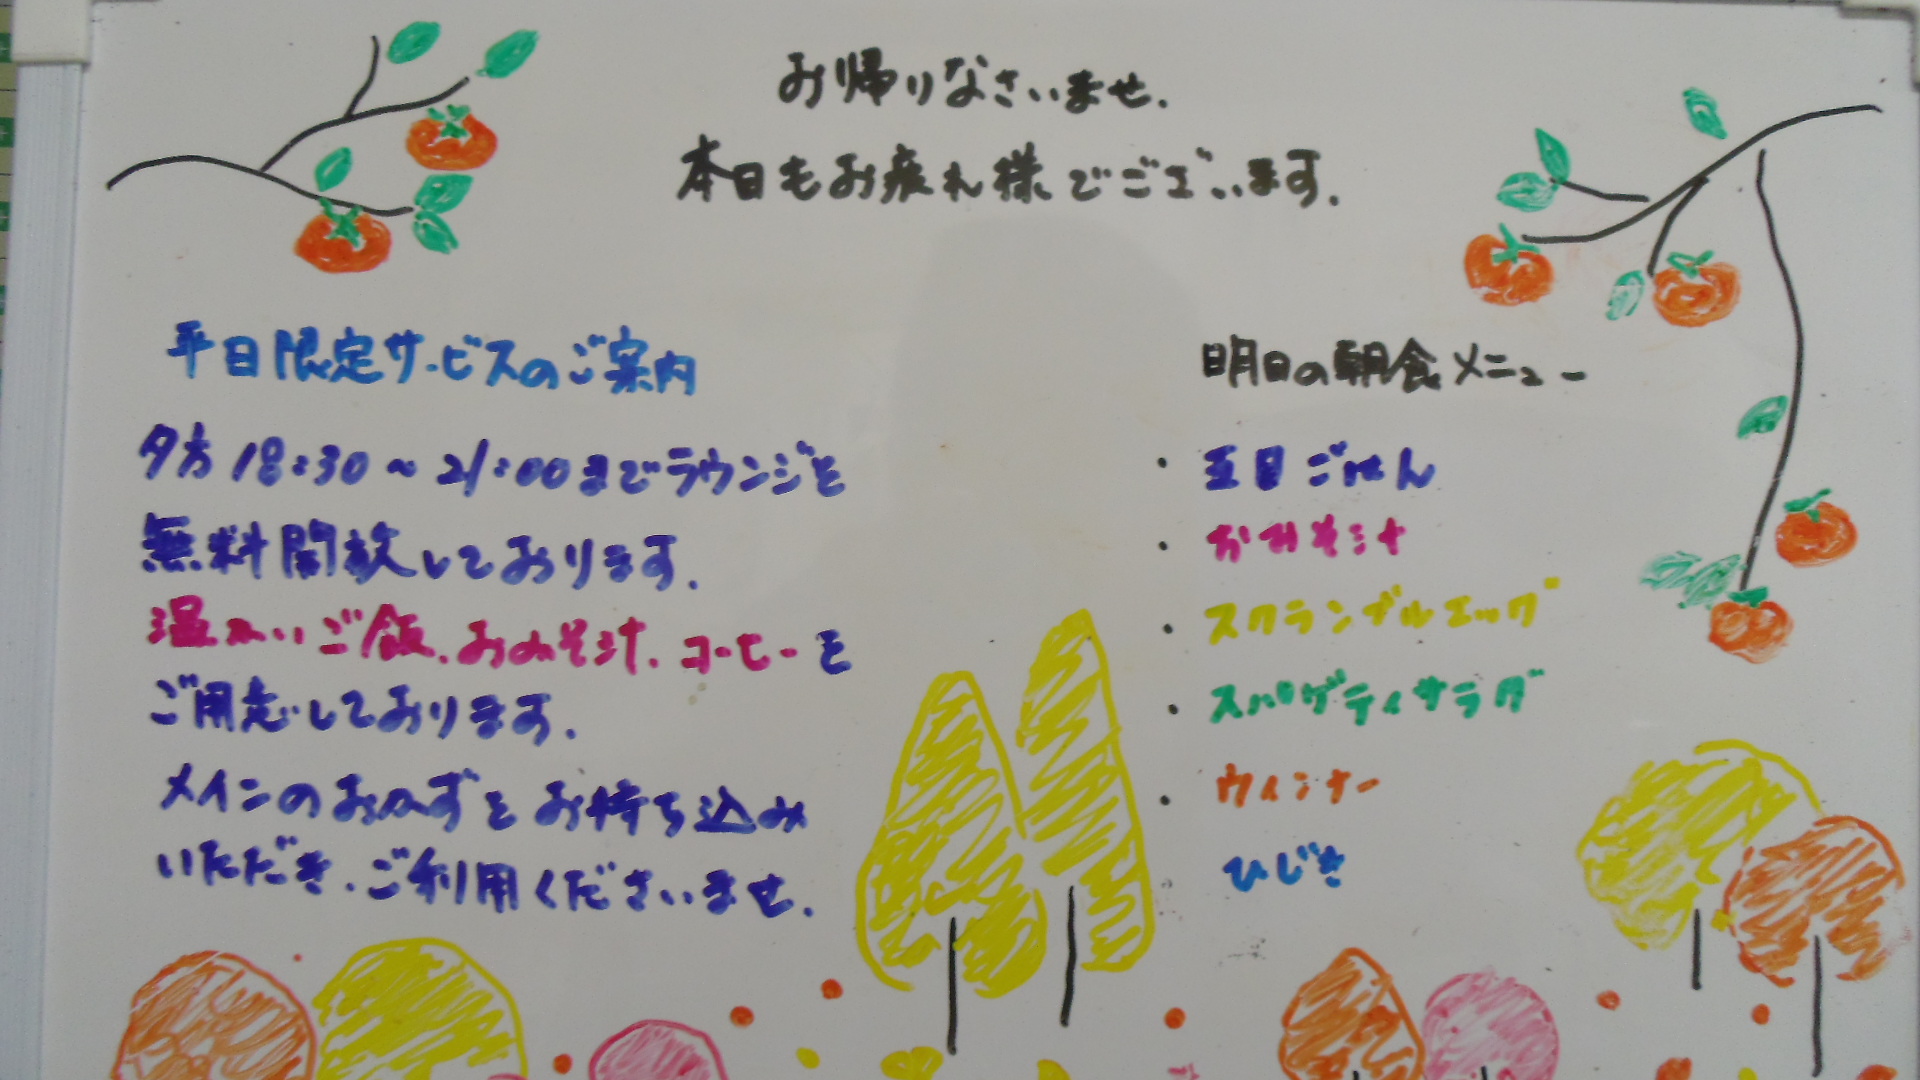 お帰りなさいませ.
本日もお疲れ様でございます.
平日限定サービスのご案内
夕方 18:30 ~ 21:00までラウンジを
無料開放しております.
温かいご飯、おみそ汁、コーヒーを
ご用意しております.
メインのおかずをお持ち込み
いただき、ご利用くださいませ.
明日の朝食メニュー
・五目ごはん
・おみそ汁
・スクランブルエッグ
・スパゲティサラダ
・ウィンナー
ひじき